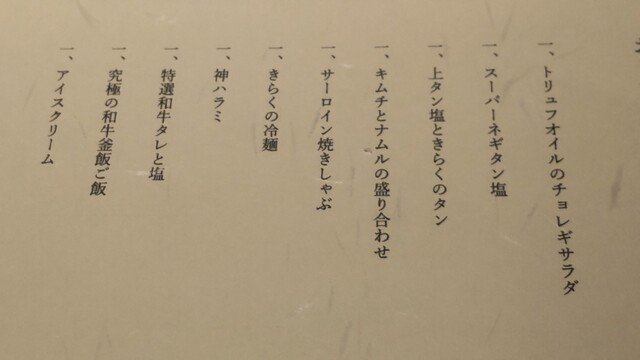 一、トリュフオイルのチョレギサラダ
一、スーパーネギタン塩
一、上タン塩ときらくのタン
一、キムチとナムルの盛り合わせ
一、サーロイン焼きしゃぶ
一、きらくの冷麺
一、神ハラミ
一、特選和牛タレと塩
一、究極の和牛釜飯ご飯
一、アイスクリーム